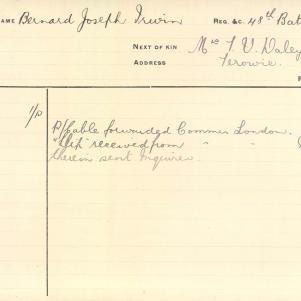 NAME Bernard Joseph Irwin REG. &C. 48th Bat
NEXT OF KIN Mrs T. V. Daley
ADDRESS Terowie.
1/P P/Cable forwarded Commis London.
received from " "
therein sent Inquirer.